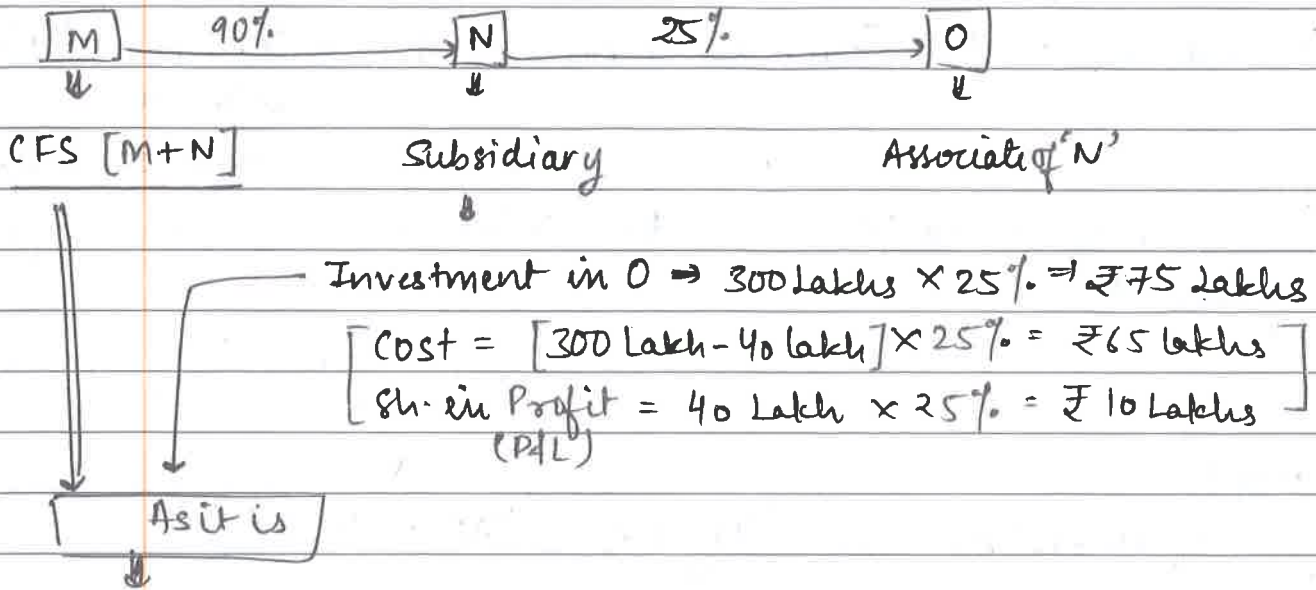 M 90% N 25% O
CFS [M+N] Subsidiary Associate of 'N'
Investment in O ⇒ 300 Lakhs × 25% ⇒ ₹75 Lakhs
Cost = [300 Lakh - 40 lakh] × 25% = ₹65 lakhs
Sh. in Profit = 40 Lakh × 25% = ₹10 Lakhs
(P&L)
As it is